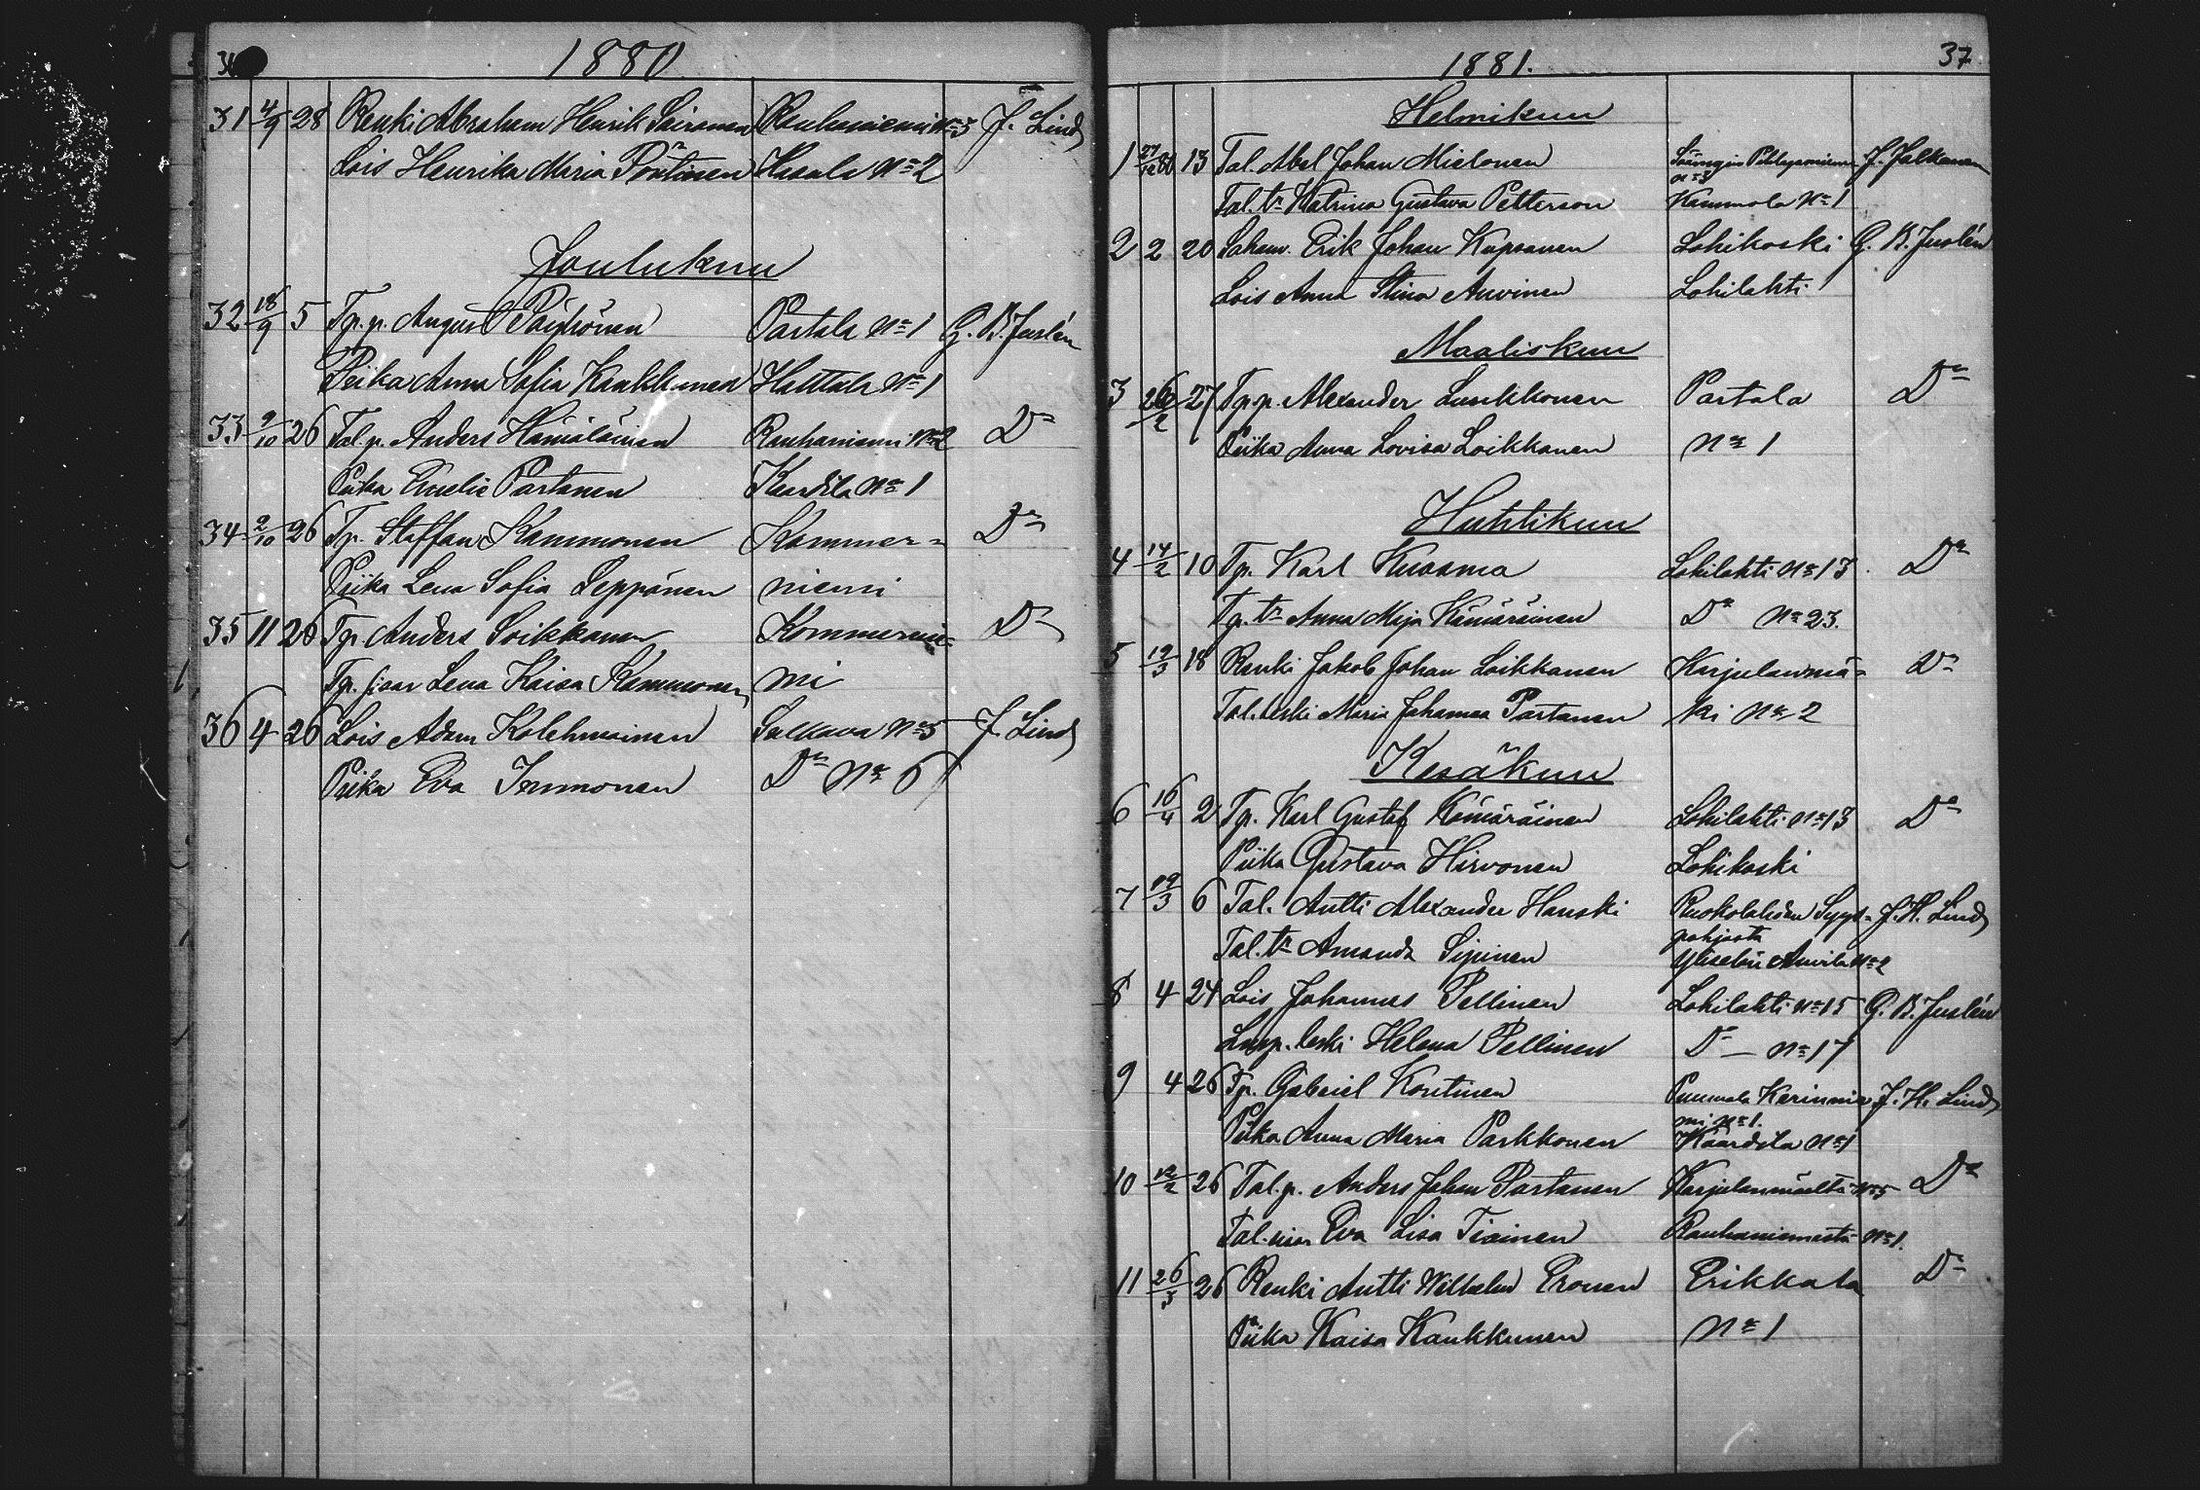 36
1880
31 4/9 28 Renki Abraham Henrik Sairanen Rauhaniemi No 3 J. Lind
Lois Henrika Maria Pöntinen No 2
Joulukuu
32 18/9 5 Tp.p. August Päihönen Partala No 1 G. B. Juslén
Piika Anna Sofia Kaukkunen No 1
33 9/10 26 Tal.p. Anders Hämäläinen Rauhaniemi No 2 Do
Piika Emelie Partanen Kaartila No 1
34 2/10 26 Tp. Staffan Kammonen Kommer=
Do
Piika Lena Sofia Leppänen niemi
35 11 26 Tp. Anders Loikkanen Kommernie= Do
Tp. sisar Lena Kaisa Kammonen mi
36 4 26 Lois Adam Kolehmainen No 5 J Lind
Piika Eva Immonen Do No 6
37
1881.
Helmikuu
1 27/12 80 13 Tal. Abel Johan Mielonen J. Jalkanen
No 3
Tal. tr Katrina Gustava Petterson Kammola No 1
2 2 20 Erik Johan Kuposnen Lohikoski G. B. Juslén
Lois Anna Stina Auvinen Lohilahti
Maaliskuu
3 26/2 27 Tp.p. Alexander Luukkonen Partala Do
Piika Anna Lovisa Loikkanen No 1
Huhtikuu
4 14/2 10 Tp. Karl Kuosma Lohilahti No 13 Do
Tp. tr Anna Maja Kämäräinen Do No 23.
5 19/3 18 Renki Jakob Johan Loikkanen Karjulanmä= Do
Tal. leski Maria Johanna Partanen ki No 2
Kesäkuu
6 16/4 2 Tp. Karl Gustaf Kämäräinen Lohilahti No 13 Do
Piika Gustava Hirvonen Lohikoski
7 19/3 6 Tal. Antti Alexander Hanski Ruokolahden Syys= J. H. Lind
pohjasta
Tal. tr Amanda Sipinen No 2
8 4 24 Lois Johannes Pellinen Lohilahti No 15 G. B. Juslén
Lamp. leski Helena Pellinen Do — No 17
9 4 26 Tp. Gabriel Kontinen Puumala J. H. Lind
mi No 1.
Piika Anna Maria Parkkonen Kaardila No 1
10 12/2 26 Tal.p. Anders Johan Partanen Karjulanmäeltä No 5 Do
Eva Lisa Tiainen Rauhaniemestä No 1.
11 26/3 26 Renki Antti Wilhelm Eronen Erikkala Do
Piika Kaisa Kaukkunen No 1